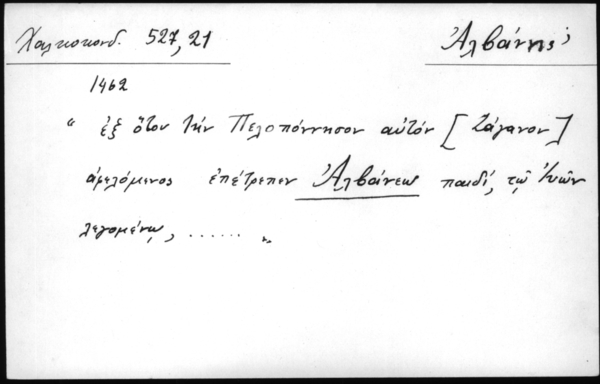 Χαλκοκονδ. 527,21 Ἀλβάνης;
1462
“ ἐξ ὅτου τὴν Πελοπόννησον αὐτὸν [Ζάγανον]
ἀφελόμενος ἐπέτρεπεν Ἀλβάνεω παιδί, τῷ
λεγομένῳ, ...... „